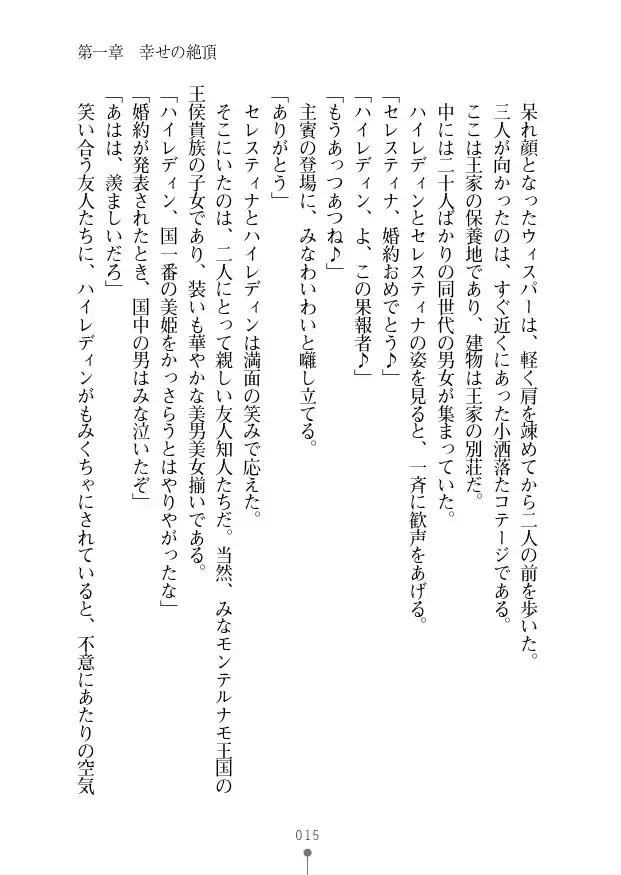 第一章　幸せの絶頂
呆れ顔となったウィスパーは、軽く肩を竦めてから二人の前を歩いた。
三人が向かったのは、すぐ近くにあった小洒落たコテージである。
ここは王家の保養地であり、建物は王家の別荘だ。
中には二十人ばかりの同世代の男女が集まっていた。
ハイレディンとセレスティナの姿を見ると、一斉に歓声をあげる。
「セレスティナ、婚約おめでとう♪」
「ハイレディン、よ、この果報者♪」
「もうあっつあつね♪」
主賓の登場に、みなわいわいと囃し立てる。
「ありがとう」
セレスティナとハイレディンは満面の笑みで応えた。
そこにいたのは、二人にとって親しい友人知人たちだ。当然、みなモンテルナモ王国の
王侯貴族の子女であり、装いも華やかな美男美女揃いである。
「ハイレディン、国一番の美姫をかっさらうとはやりやがったな」
「婚約が発表されたとき、国中の男はみな泣いたぞ」
「あはは、羨ましいだろ」
笑い合う友人たちに、ハイレディンがもみくちゃにされていると、不意にあたりの空気
015